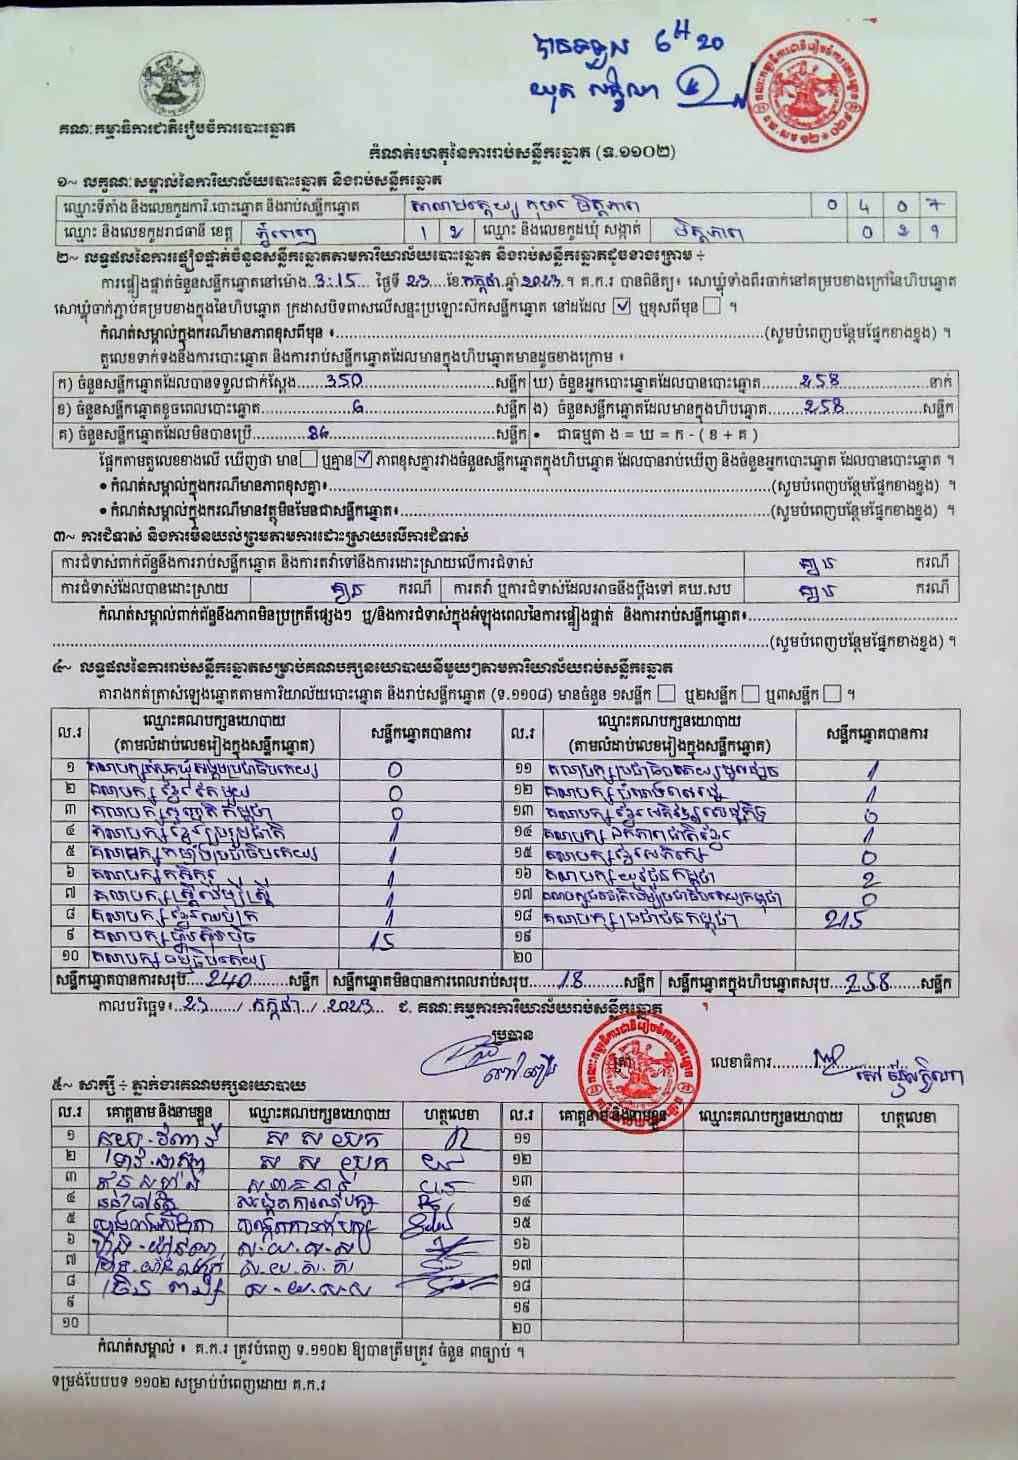 បានទទួល 6H20
គណៈកម្មាធិការជាតិរៀបចំការបោះឆ្នោត
កំណត់ហេតុនៃការរាប់សន្លឹកឆ្នោត (ទ.១១០២)
១~ លក្ខណៈសម្គាល់នៃការិយាល័យបោះឆ្នោត និងរាប់សន្លឹកឆ្នោត
ឈ្មោះទីតាំង និងលេខកូដការិ.បោះឆ្នោត និងរាប់សន្លឹកឆ្នោត កុមារ មិត្តភាព 0 4 0 7
ឈ្មោះ និងលេខកូដរាជធានី ខេត្ត ភ្នំពេញ 1 2 ឈ្មោះ និងលេខកូដឃុំ សង្កាត់ មិត្តភាព 0 2 1
២~ លទ្ធផលនៃការផ្ទៀងផ្ទាត់ចំនួនសន្លឹកឆ្នោតតាមការិយាល័យបោះឆ្នោត និងរាប់សន្លឹកឆ្នោតដូចខាងក្រោម ÷
ការផ្ទៀងផ្ទាត់ចំនួនសន្លឹកឆ្នោតនៅម៉ោង..3:15.. ថ្ងៃទី 23 ...ខែ.កក្កដា.ឆ្នាំ 2023.។ គ.ក.រ បានពិនិត្យ៖ សោឃ្លុំទាំងពីរចាក់នៅគម្របខាងក្រៅនៃហិបឆ្នោត
សោឃ្លុំចាក់ភ្ជាប់គម្របខាងក្នុងនៃហិបឆ្នោត ក្រដាសបិទពាសលើសន្ទះប្រឡោះស៊កសន្លឹកឆ្នោត នៅដដែល ☑ ឬខុសពីមុន ☐ ។
កំណត់សម្គាល់ក្នុងករណីមានភាពខុសពីមុន ៖.....(សូមបំពេញបន្ថែមផ្នែកខាងខ្នង) ។
តួលេខទាក់ទងនឹងការបោះឆ្នោត និងការរាប់សន្លឹកឆ្នោតដែលមានក្នុងហិបឆ្នោតមានដូចខាងក្រោម ៖
ក) ចំនួនសន្លឹកឆ្នោតដែលបានទទួលជាក់ស្តែង.....350.....សន្លឹក ឃ) ចំនួនអ្នកបោះឆ្នោតដែលបានបោះឆ្នោត.....258.....នាក់
ខ) ចំនួនសន្លឹកឆ្នោតខូចពេលបោះឆ្នោត.....6.....សន្លឹក ង) ចំនួនសន្លឹកឆ្នោតដែលមានក្នុងហិបឆ្នោត.....258.....សន្លឹក
គ) ចំនួនសន្លឹកឆ្នោតដែលមិនបានប្រើ.....86.....សន្លឹក • ជាធម្មតា ង = ឃ = ក - ( ខ + គ )
ផ្អែកតាមតួលេខខាងលើ ឃើញថា មាន☐ ឬគ្មាន☑ ភាពខុសគ្នារវាងចំនួនសន្លឹកឆ្នោតក្នុងហិបឆ្នោត ដែលបានរាប់ឃើញ និងចំនួនអ្នកបោះឆ្នោត ដែលបានបោះឆ្នោត ។
• កំណត់សម្គាល់ក្នុងករណីមានភាពខុសគ្នា៖.....(សូមបំពេញបន្ថែមផ្នែកខាងខ្នង) ។
• កំណត់សម្គាល់ក្នុងករណីមានវត្ថុមិនមែនជាសន្លឹកឆ្នោត៖.....(សូមបំពេញបន្ថែមផ្នែកខាងខ្នង) ។
៣~ ការជំទាស់ និងការមិនយល់ព្រមតាមការដោះស្រាយលើការជំទាស់
ការជំទាស់ពាក់ព័ន្ធនឹងការរាប់សន្លឹកឆ្នោត និងការតវ៉ាទៅនឹងការដោះស្រាយលើការជំទាស់ គ្មាន ករណី
ការជំទាស់ដែលបានដោះស្រាយ គ្មាន ករណី ការតវ៉ា ឬការជំទាស់ដែលអាចនឹងប្តឹងទៅ គឃ.សប គ្មាន ករណី
កំណត់សម្គាល់ពាក់ព័ន្ធនឹងភាពមិនប្រក្រតីផ្សេងៗ ឬ/និងការជំទាស់ក្នុងអំឡុងពេលនៃការផ្ទៀងផ្ទាត់ និងការរាប់សន្លឹកឆ្នោត៖.....
.....(សូមបំពេញបន្ថែមផ្នែកខាងខ្នង) ។
៤~ លទ្ធផលនៃការរាប់សន្លឹកឆ្នោតសម្រាប់គណបក្សនយោបាយនីមួយៗតាមការិយាល័យរាប់សន្លឹកឆ្នោត
តារាងកត់ត្រាសំឡេងឆ្នោតតាមការិយាល័យបោះឆ្នោត និងរាប់សន្លឹកឆ្នោត (ទ.១១០៨) មានចំនួន ១សន្លឹក ☐ ឬ២សន្លឹក ☐ ឬ៣សន្លឹក ☐ ។
ល.រ ឈ្មោះគណបក្សនយោបាយ (តាមលំដាប់លេខរៀងក្នុងសន្លឹកឆ្នោត) សន្លឹកឆ្នោតបានការ ល.រ ឈ្មោះគណបក្សនយោបាយ (តាមលំដាប់លេខរៀងក្នុងសន្លឹកឆ្នោត) សន្លឹកឆ្នោតបានការ
១ គណបក្សសំបុកឃ្មុំសង្គមប្រជាធិបតេយ្យ 0 ១១ គណបក្សប្រជាធិបតេយ្យមូលដ្ឋាន 1
២ គណបក្សខ្មែរតែមួយ 0 ១២ 1
៣ គណបក្ស កម្ពុជា 0 ១៣ គណបក្សខ្មែរអភិវឌ្ឍន៍សេដ្ឋកិច្ច 0
៤ គណបក្សខ្មែររួបរួមជាតិ 1 ១៤ គណបក្ស ឯកភាពជាតិខ្មែរ 1
៥ គណបក្សកម្លាំងប្រជាធិបតេយ្យ 1 ១៥ គណបក្សខ្មែរអភិរក្ស 0
៦ គណបក្សកសិករ 1 ១៦ គណបក្សយុវជនកម្ពុជា 2
៧ គណបក្សស្ត្រីដើម្បីស្ត្រី 1 ១៧ គណបក្សជនជាតិដើមប្រជាធិបតេយ្យកម្ពុជា 0
៨ គណបក្សខ្មែរឈប់ក្រ 1 ១៨ គណបក្សប្រជាជនកម្ពុជា 215
៩ គណបក្សហ្វ៊ុនស៊ិនប៉ិច 15 ១៩
១០ គណបក្សធម្មាធិបតេយ្យ ២០
សន្លឹកឆ្នោតបានការសរុប.....240.....សន្លឹក សន្លឹកឆ្នោតមិនបានការពេលរាប់សរុប.....18.....សន្លឹក សន្លឹកឆ្នោតក្នុងហិបឆ្នោតសរុប...258.....សន្លឹក
កាលបរិច្ឆេទ៖..23..../..កក្កដា../..2023... ជ. គណៈកម្មការការិយាល័យរាប់សន្លឹកឆ្នោត
ប្រធាន
លេខាធិការ.....
៥~ សាក្សី ÷ ភ្នាក់ងារគណបក្សនយោបាយ
ល.រ គោត្តនាម និងនាមខ្លួន ឈ្មោះគណបក្សនយោបាយ ហត្ថលេខា ល.រ គោត្តនាម និងនាមខ្លួន ឈ្មោះគណបក្សនយោបាយ ហត្ថលេខា
១ ស ស យុក ១១
២ ស ស យុក ១២
៣ ១៣
៤ ១៤
៥ ១៥
៦ ស.យ.ស.ស ១៦
៧ ស.យ.ស.ស ១៧
៨ ស.យ.ស.ស ១៨
៩ ១៩
១០ ២០
កំណត់សម្គាល់ ៖ គ.ក.រ ត្រូវបំពេញ ទ.១១០២ ឱ្យបានត្រឹមត្រូវ ចំនួន ៣ច្បាប់ ។
ទម្រង់បែបបទ ១១០២ សម្រាប់បំពេញដោយ គ.ក.រ